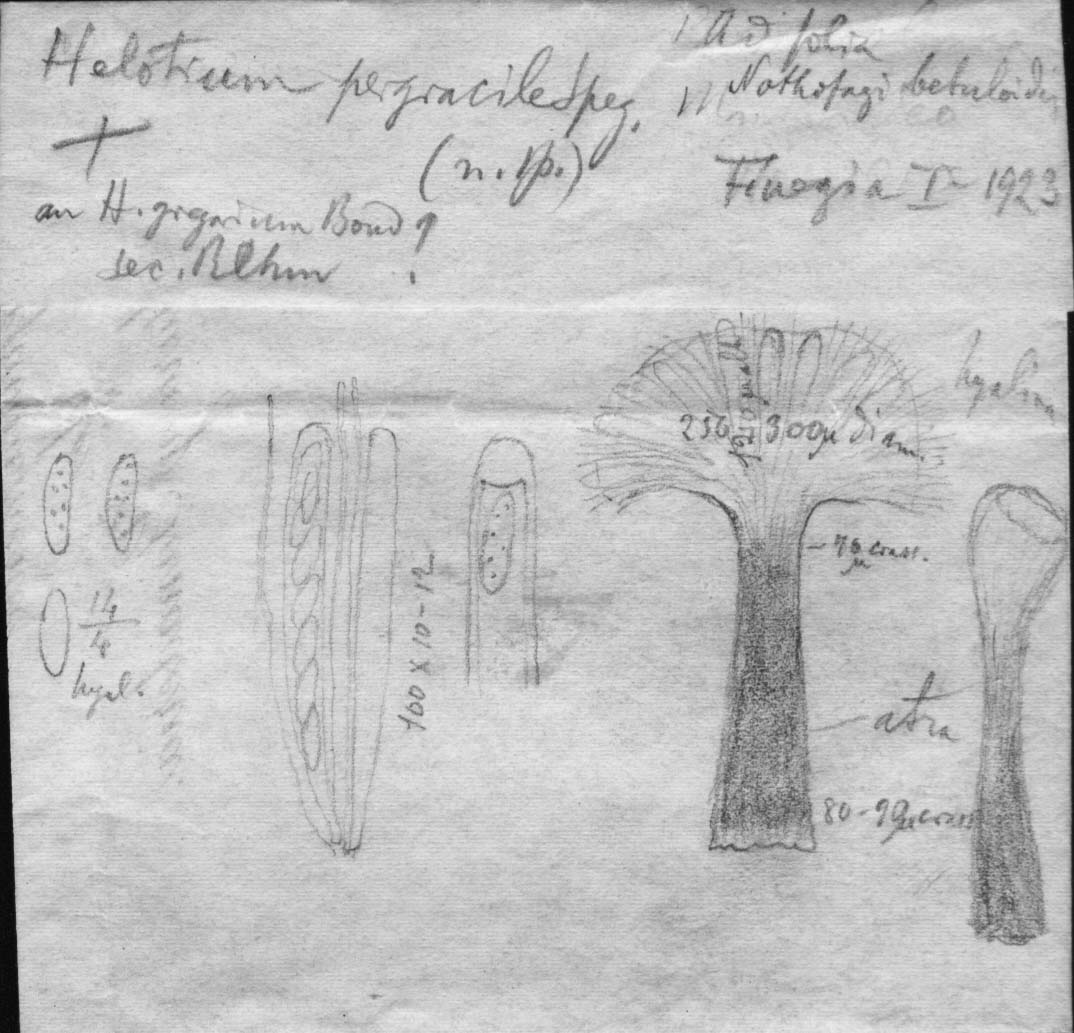 Helotium pergracile Speg.
(n. sp.)
Ad folia
Nothofagi betuloidis
Fuegia I - 1923
+
an H. Boud?
sec. Rehm
hyalina
250 300µ diam.
14/4
hyal.
100 x 10-12
crass.
atra
80-90µ crass